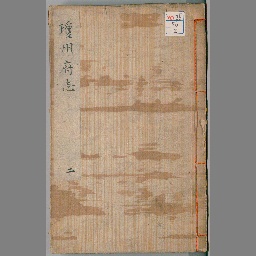 瓊州府志
二